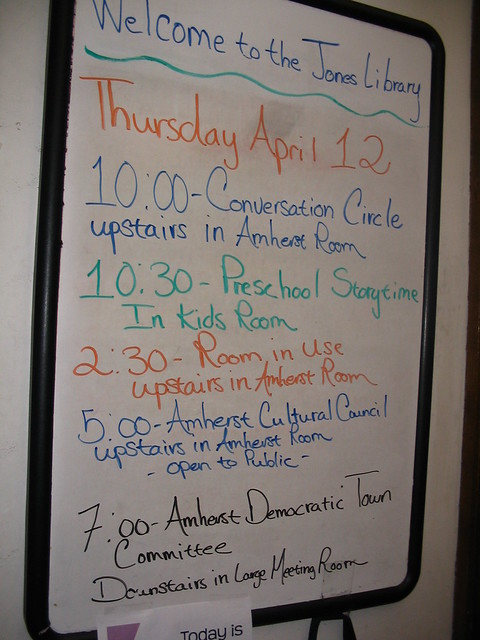 Welcome to the Jones Library
Thursday April 12
10:00-Conversation Circle
upstairs in Amherst Room
10:30-Preschool Storytime
In Kids Room
2:30-Room in use
upstairs in Amherst Room
5:00-Amherst Cultural Council
upstairs in Amherst Room
- open to Public -
7:00-Amherst Democratic Town
Committee
Downstairs in Large Meeting Room
Today is